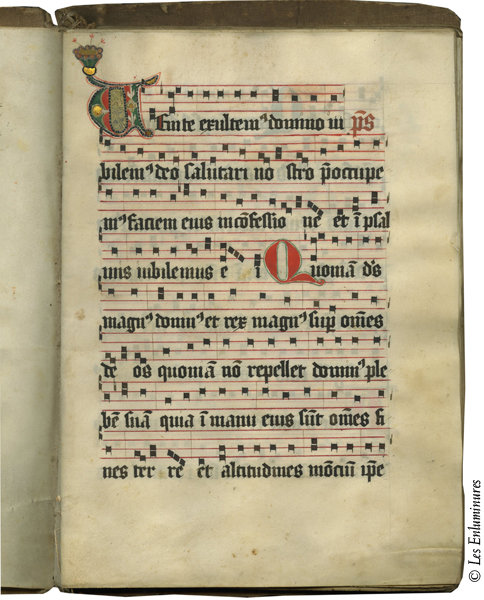 Uenite exultem⁹ domino iu p̄s
bilem⁹ deo salutari no stro p̄occupe
m⁹ faciem eius in cōfessio ne et ī psal
mis iubilemus e i Quoniam d̄s
magn⁹ domin⁹ et rex magn⁹ sup̄ om̄es
de os quoniam nō repellet domin⁹ ple
bē suā quia ī manu eius sūt om̄es fi
nes ter re et altitudines mōciū ip̄e
© Les Enluminures